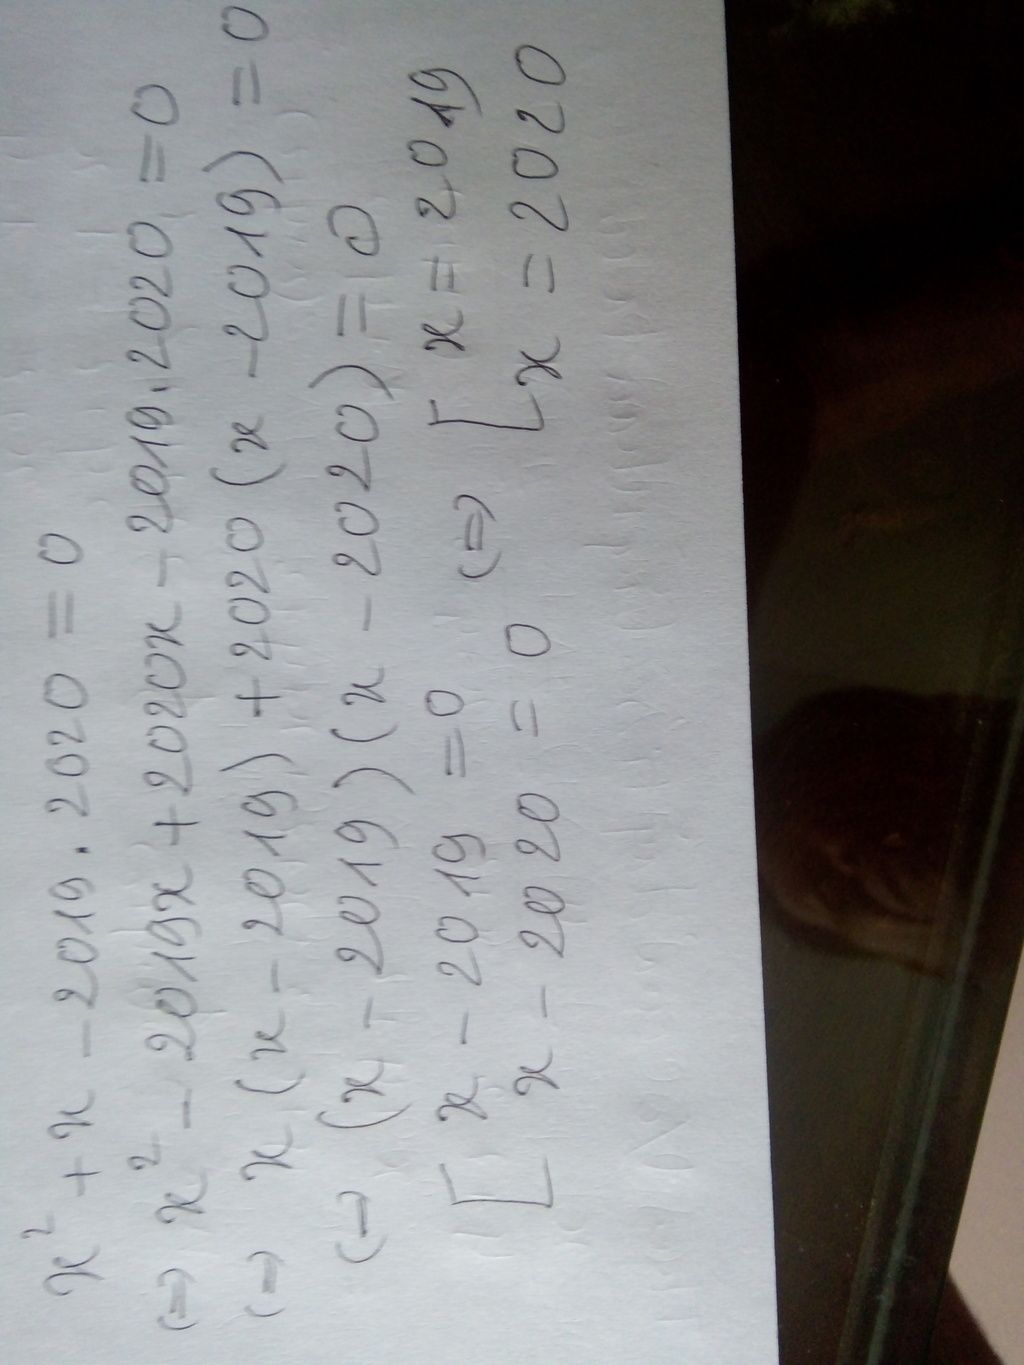 x² + x - 2019.2020 = 0
(=) x² - 2019x + 2020x - 2019.2020 = 0
(=) x (x - 2019) + 2020 (x - 2019) = 0
(=) (x - 2019) (x - 2020) = 0
[ x - 2019 = 0 (=) [ x = 2019
x - 2020 = 0 x = 2020